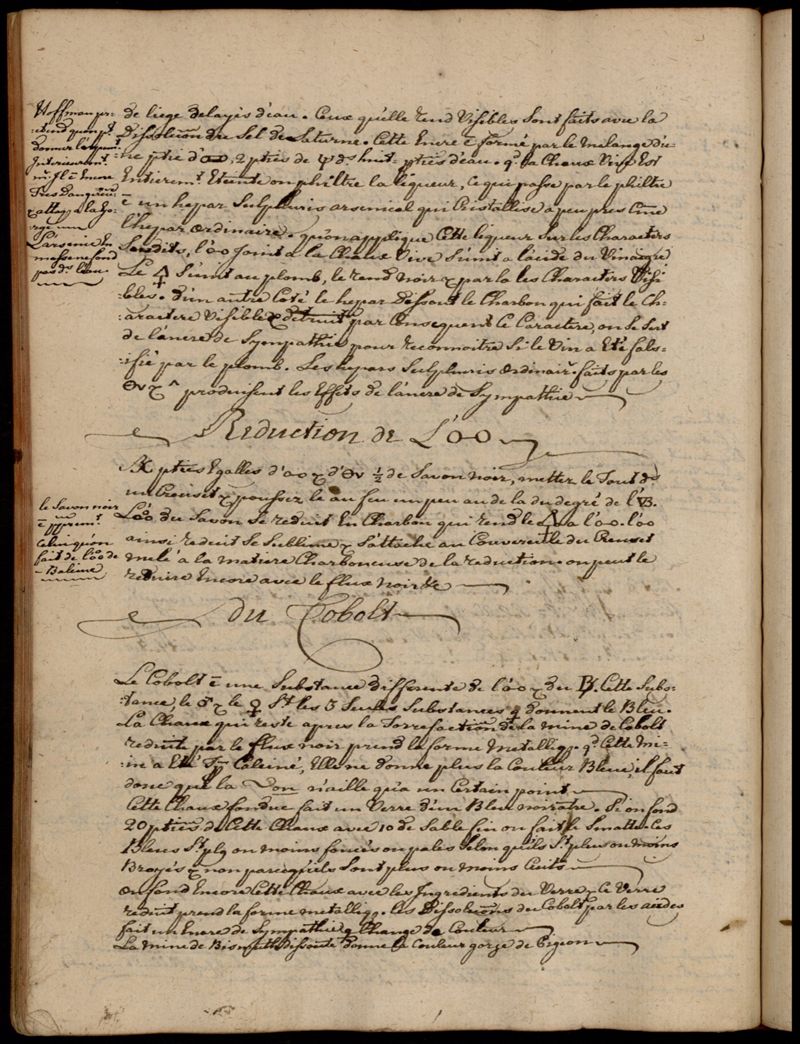 de liege delayés d'eau. Ceux qu'elle rend Visibles Sont faits avec la
Dissolu͠on du Sel de Saturne. Cette Encre ē formé par le mélange d'u-
:ne p͠tie d'oo, 2 p͠ties de ψ ds huit p͠ties d'eau. qd la Chaux Vive Est
Entierem.t Eteinte on philtre la liqueur, Ce qui passe par le philtre
ē un hepar Sulphuris arsenical qui Cristallise apeupres C͠me
l'hepar ordinaire. qu'on applique Cette liqueur Sur les Charactrs
Susdits, l'oo Joint à la Chaux Vive S'unit a l'acide du Vinaigre
Le 🜍 S'unit au plomb, le rend noir & par la les Charactrs Visi
:bles. d'un autre Coté le hepar dissout le Charbon qui fait le Ch-
:aractere Visible & detruit par Consequent Ce Caractere, on Se Sert
de l'encre de Sympathie pour reconnoitre Si le Vin a Eté fals-
:ifié par le plomb. Les hepars Sulphuris ordinair. faits par les
produisent les Effets de l'encre de Sympathie
Reduction de L'oo
p͠ties Egalles d'oo & d' ½ de Savon noir, mettez le Tout ds
un Creuset & poussez le au feu un peu au de la du degré de l'
L' du Savon Se reduit En Charbon qui rend le a l'oo. l'oo
ainsi reduit Se Sublime & S'attache au Couvercle du Creuset
melé a la matiere Charboneuse de la reduction. on peut le
reduire Encore avec le flux noir &c
du Cobolt
Le Cobolt ē une Substance differente de l'oo & du B. Cette Subs-
:tance, le & le St les 3 Seules Substances q donnent le Bleu.
La Chaux qui reste apres la Torrefaction de la mine de Cobolt
reduite par le flux noir prend la forme metalliq; qd Cette mi-
:ne a Eté Calciné, Elle ne donne plus la Couleur Bleue, il faut
donc que la n'aille qu'a un Certain point
Cette Chaux fondue fait un Verre d'un Bleu noiratre. Si on fond
20 p͠ties de Cette Chaux avec 10 de Sable fin on fait le Smatte. les
Bleus St plq ou moins foncés ou pales Selon qu'ils St plus ou moins
Broyés & non parcequ'ils Sont plus ou moins Cuits
on fond Encore Cette Chaux avec les Ingredients du Verre & Ce Verre
reduit prend la forme metalliq; les Dissolu͠ons du Cobolt par les acides
fait un Encre de Sympathie q Change de Couleur
La mine de Bismuth dissoute donne la Couleur gorge de Pigeon
Hoffman pr-
:etend qu'on pt
donner l'arsenic
Interieurem.t
Il ē Encore
Tres Dangereux
& attaque la Go-
:rge
L'arsenic En
masse ne fond
pas ds l'eau
le Savon noir
ē p͠prem.t
Celui qu'on
fait de l'oo de
Baleine